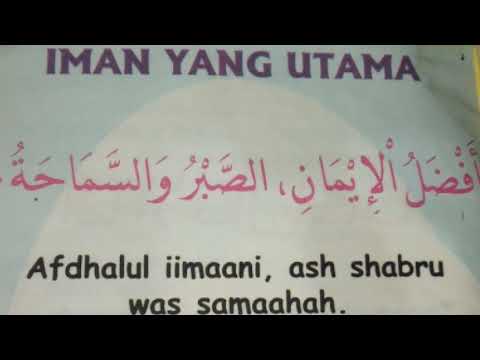 IMAN YANG UTAMA
أَفْضَلُ الْإِيْمَانِ، الصَّبْرُ وَالسَّمَاحَةُ
Afdhalul iimaani, ash shabru
was samaahah.